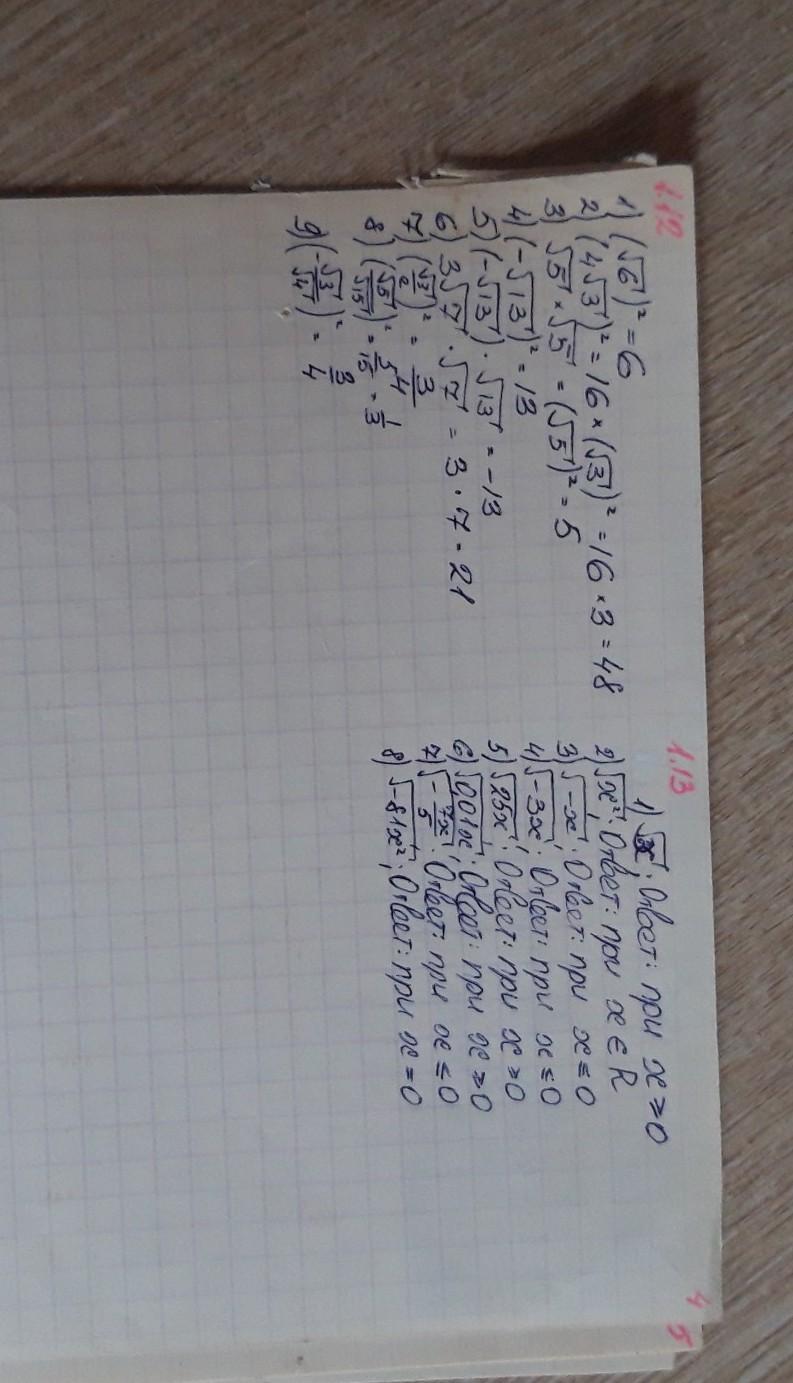 1.12
1) (√6)² = 6
2) (4√3)² = 16 × (√3)² = 16 × 3 = 48
3) √5 × √5 = (√5)² = 5
4) (-√13)² = 13
5) (-√13) · √13 = -13
6) 3√7 · √7 = 3 · 7 = 21
7) (√3/2)² = 3/4
8) (√5/√15)² = 5/15 = 1/3
9) (-√3/√4)² = 3/4
1.13
1) √x; Ответ: при x ⩾ 0
2) √x²; Ответ: при x ∈ R
3) √-x; Ответ: при x ≤ 0
4) √-3x; Ответ: при x ≤ 0
5) √25x; Ответ: при x ⩾ 0
6) √0,01x; Ответ: при x ⩾ 0
7) √-7x/5; Ответ: при x ≤ 0
8) √-81x²; Ответ: при x = 0
4 5